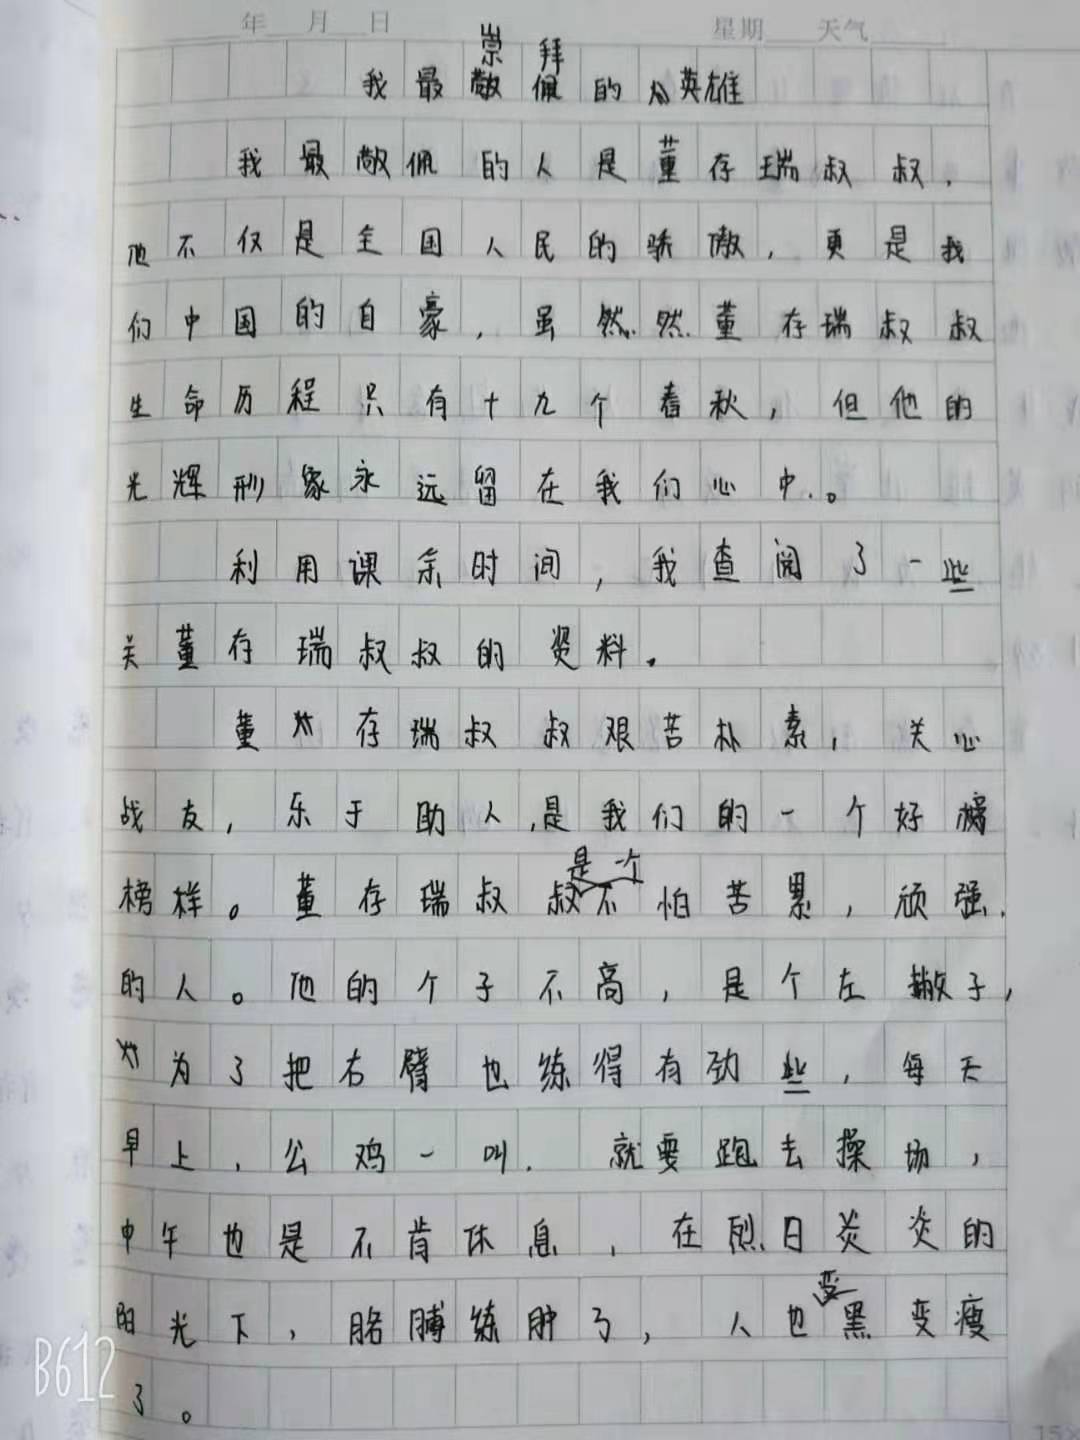 年 月 日 星期 天气
崇拜
我最敬佩的英雄
我最敬佩的人是董存瑞叔叔,
他不仅是全国人民的骄傲,更是我
们中国的自豪,虽然然董存瑞叔叔
生命历程只有十九个春秋,但他的
光辉形象永远留在我们心中。
利用课余时间,我查阅了一些
关董存瑞叔叔的资料。
董存瑞叔叔艰苦朴素,关心
战友,乐于助人,是我们的一个好榜
榜样。董存瑞叔叔是一个不怕苦累,顽强
的人。他的个子不高,是个左撇子,
为了把右臂也练得有劲些,每天
早上,公鸡一叫.就要跑去操场,
中午也是不肯休息,在烈日炎炎的
阳光下,胳膊练肿了,人也变黑变瘦
了。
B612